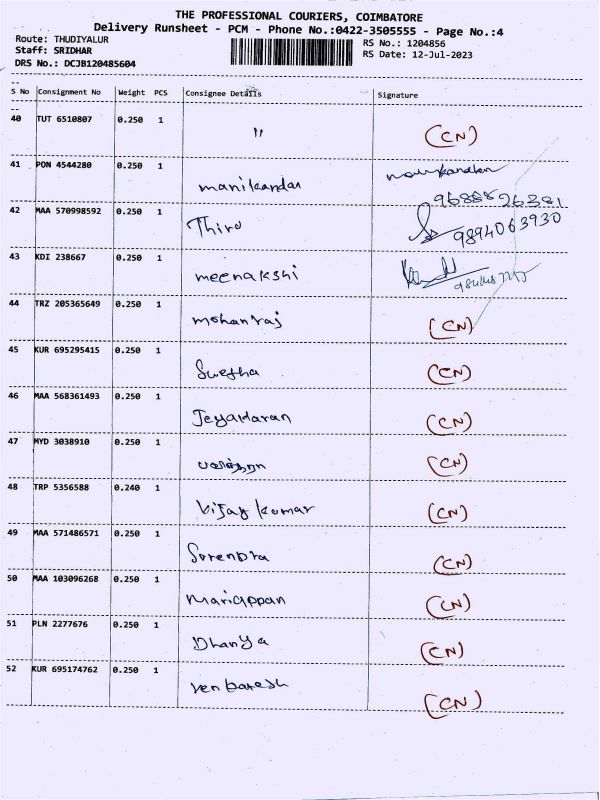 THE PROFESSIONAL COURIERS, COIMBATORE
Delivery Runsheet - PCM - Phone No.:0422-3505555 - Page No.:4
Route: THUDIYALUR RS No.: 1204856
Staff: SRIDHAR RS Date: 12-Jul-2023
DRS No.: DCJB120485604
S No Consignment No Weight PCS Consignee Details Signature
40 TUT 6510807 0.250 1
" (CN)
41 PON 4544280 0.250 1
manikandan manikandan
9688826381
42 MAA 570998592 0.250 1
Thiru 9894063930
43 KDI 238667 0.250 1
meenakshi
44 TRZ 205365649 0.250 1
mohanraj (CN)
45 KUR 695295415 0.250 1
Swetha (CN)
46 MAA 568361493 0.250 1
Jeyakaran (CN)
47 MYD 3038910 0.250 1
(CN)
48 TRP 5356588 0.240 1
Vijay kumar (CN)
49 MAA 571486571 0.250 1
Surendra (CN)
50 MAA 103096268 0.250 1
Mariappan (CN)
51 PLN 2277676 0.250 1
Dhanya (CN)
52 KUR 695174762 0.250 1
venkatesh (CN)